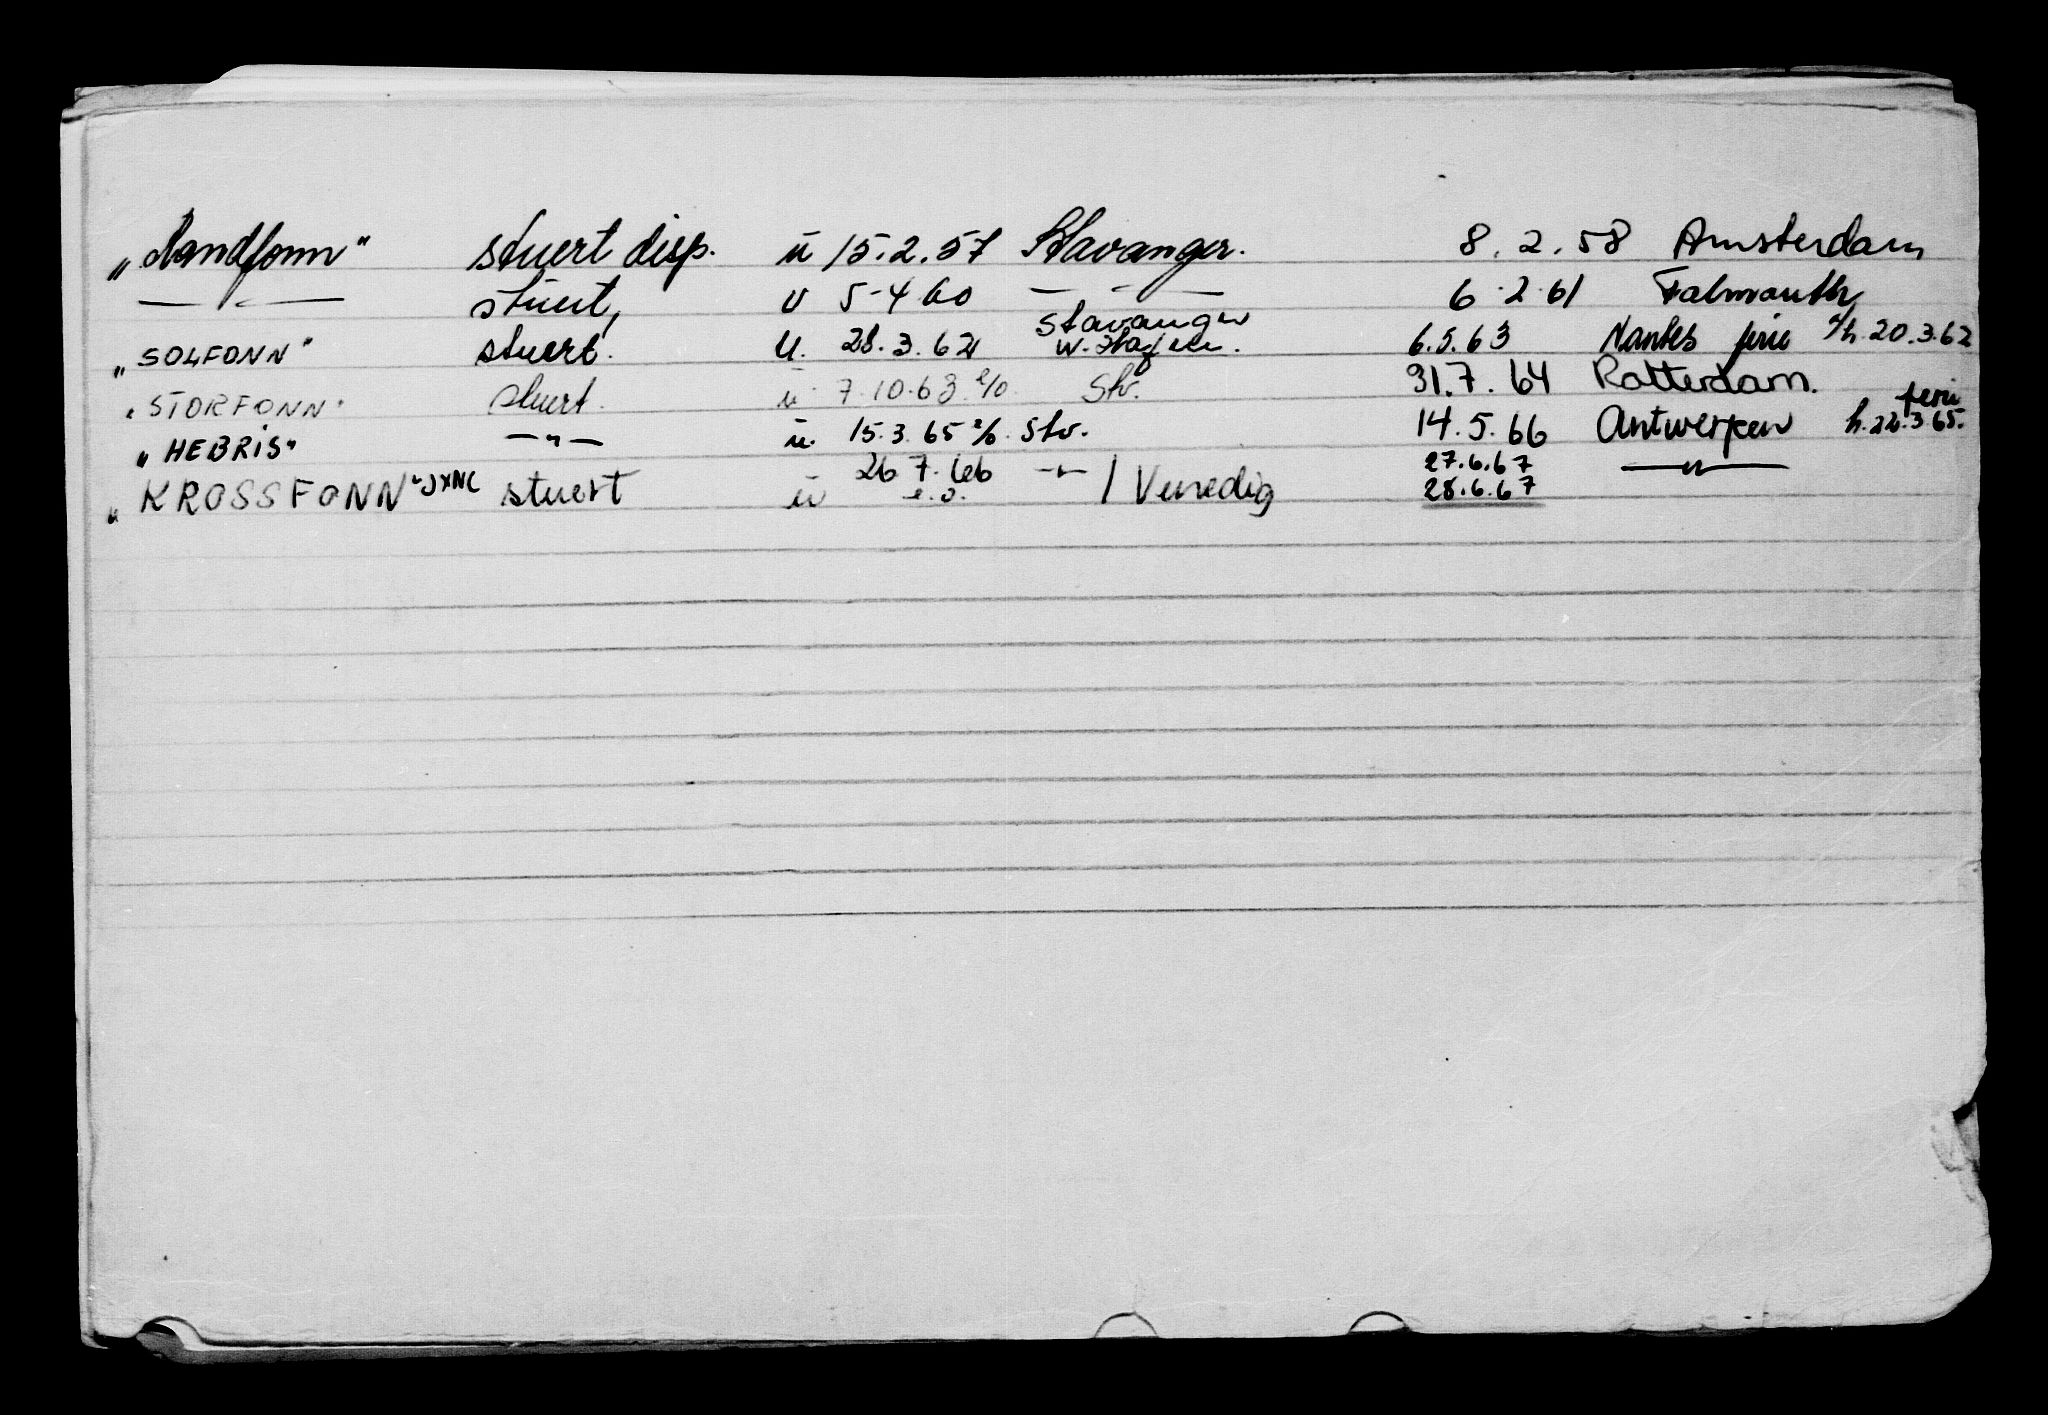 „Randfonn" stuert disp. u 15.2.57 Stavanger. 8.2.58 Amsterdam
— " — stuert, u 5-4 60 — " — 6.2.61 Falmouth
„SOLFONN" stuert. u. 28.3.62 Stavanger 6.5.63 Nantes ferie h. 20.3.62
„STORFONN" stuert. u. 7.10.63 e/o. Stv. 31.7.64 Rotterdam.
„HEBRIS" — " — u. 15.3.65 e/o. Stv. 14.5.66 Antwerpen ferie h. 22.3.65.
„KROSSFONN" JXNC stuert u 26 7. 66 e.o. — " — / Venedig 27.6.67 — " —
28.6.67